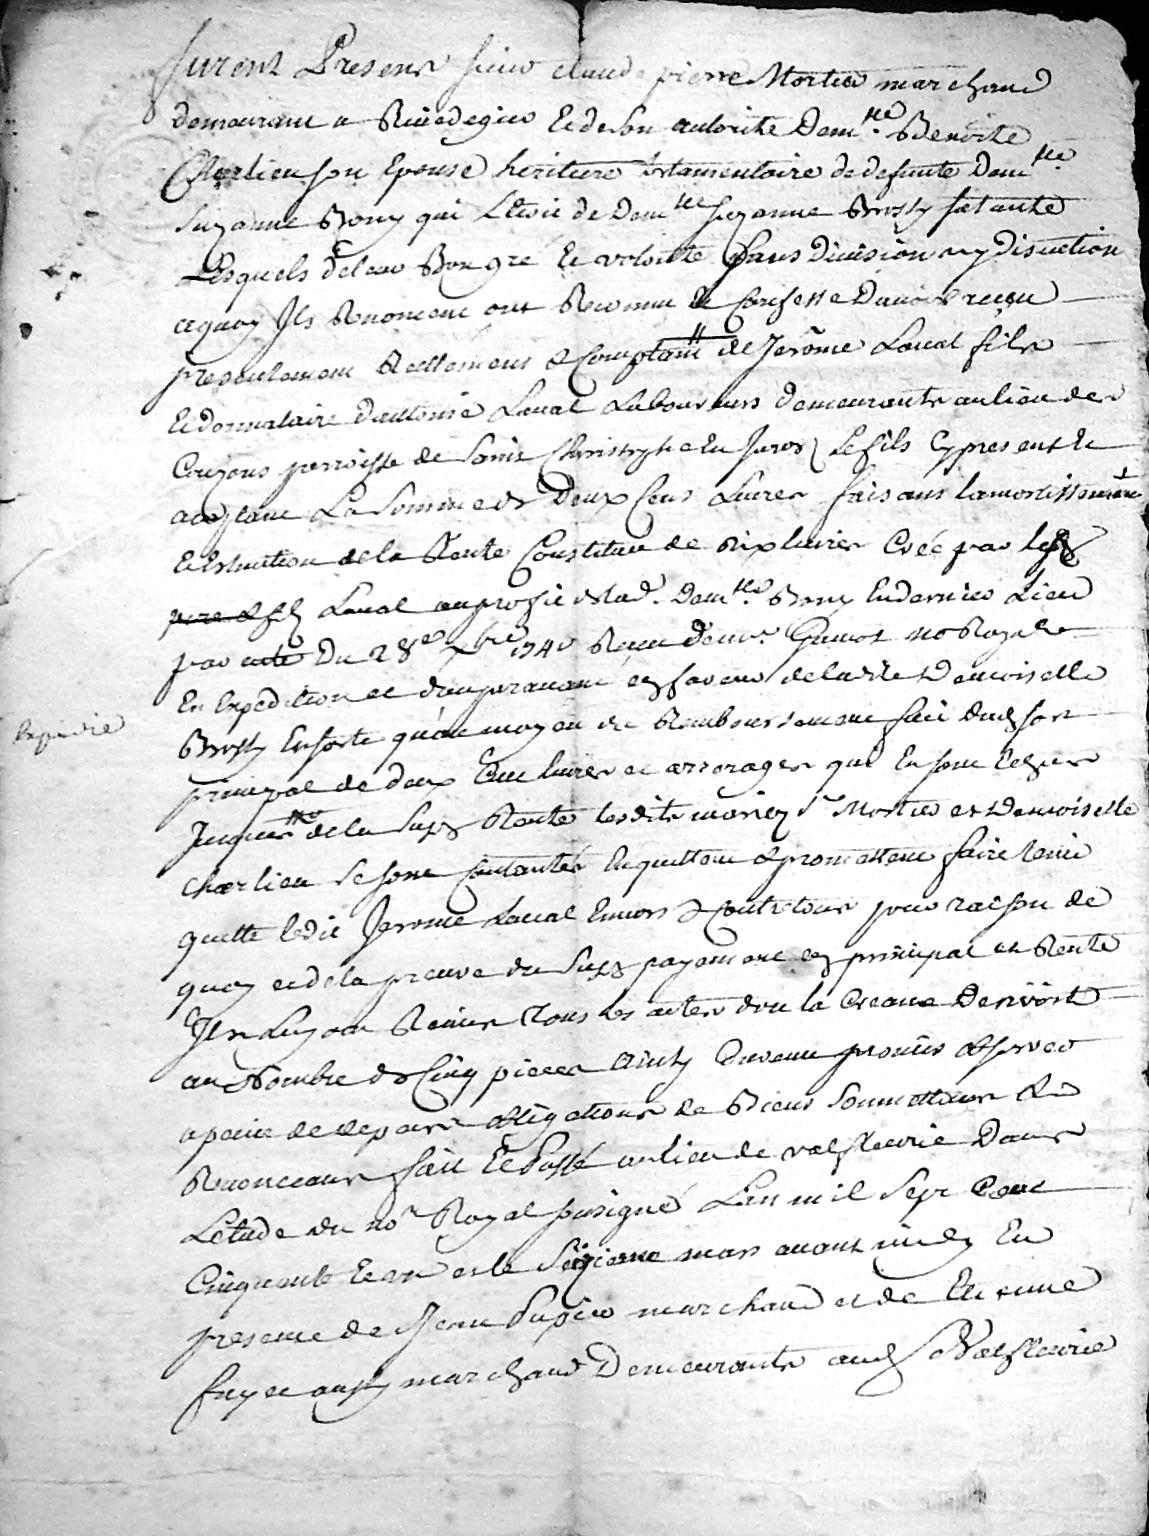 furent Presens sieur claude pierre Mortier marchand
demeurant a Rivedegier et de son autorité Dem.lle Benoite
Charlieu son Epouse heritiere testamentaire de defunte Dem.lle
Suzanne Bony qui L'etoit de Dem.lle Suzanne Brossy sa tante
Lesquels de leur Bon gré et volonté sans division ny discution
a quoy Ils Renoncent ont Reconnu et Confessé D'avoir reçeu
presentement Reellement & Comptant de Jerôme Laval fils
et donnataire d'antoine Laval Laboureurs demeurants au lieu des
parroisse de Saint Christophe en Jarez Le fils Cy present et
acceptant La Somme de Deux Cens Livres faisant lamortissement
et Extinction de la Rente Constituée de dix livres Créé par lesd.
pere & fils Laval au profit de lad. Dem.lle Bony En dernier Lieu
par acte Du 28e Xbre 1740 Reçu d'eux no Royal
En Expedition et d'auparavant en faveur de ladite Demoiselle
Brossy En sorte qu'au moyen du Remboursement fait dud. sort
principal de deux Cent livres et arrerages qui En sont Echeus
Jusques de la Susd. Rente lesdits mariez Sr Mortier et Demoiselle
Charlieu se sont Contantés En quittent & promettent faire tenir
quitte ledit Jerome Laval Envers & Contre tous pour raison de
quoy et de la preuve du Susd. payement en principal et Rente
Ils Luy ont Remis Tous les actes dou la Creance Derivoit
au Nombre de Cinq pieces Ainsy Convenu promis observer
a peine de depens obligations de Biens Soumissions &
Renonciations fait et Passé au lieu de valfleurie Dans
L'etude du no.re Royal sousigné L'an mil Sept Cent
Cinquante et un et le Seizieme mars avant midy En
presence de Jean Dupin marchand et de Etienne
aussy marchand Demeurants aud. Valfleurie
Expedié